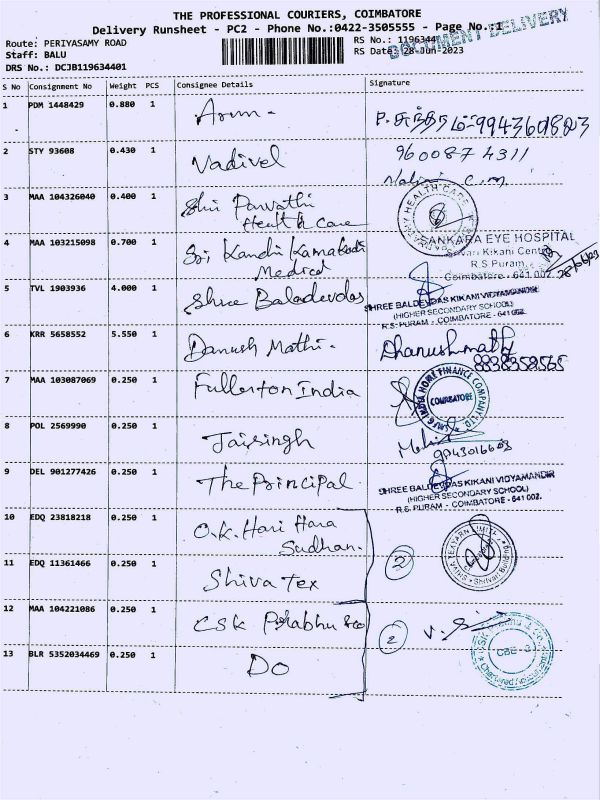 THE PROFESSIONAL COURIERS, COIMBATORE
Delivery Runsheet - PC2 - Phone No.:0422-3505555 - Page No.:1
DOCUMENT DELIVERY
Route: PERIYASAMY ROAD
Staff: BALU
DRS No.: DCJB119634401
RS No.: 1196344
RS Date: 28-Jun-2023
S No Consignment No Weight PCS Consignee Details Signature
1 PDM 1448429 0.880 1 Arun - P. சுந்தரம்-9943601823
2 STY 93608 0.430 1 Vadivel 9600874311
3 MAA 104326040 0.400 1 Shri Parvathi
Health Care
HEALTH CARE
4 MAA 103215098 0.700 1 Sri Kanchi Kamakodi
Medical
SANKARA EYE HOSPITAL
Sivan Kikani Centre
R.S Puram,
Coimbatore - 641 002.
5 TVL 1903936 4.000 1 Shree Baladevdas
SHREE BALDEVDAS KIKANI VIDYAMANDIR
(HIGHER SECONDARY SCHOOL)
R.S. PURAM - COIMBATORE - 641 002.
6 KRR 5658552 5.550 1 Danush Mathi. Dhanushmathi
8838358565
7 MAA 103087069 0.250 1 Fullerton India
INDIA HOME FINANCE COMPANY LTD.
COIMBATORE
8 POL 2569990 0.250 1 Jaisingh
9043016603
9 DEL 901277426 0.250 1 The Principal.
SHREE BALDEVDAS KIKANI VIDYAMANDIR
(HIGHER SECONDARY SCHOOL)
R.S. PURAM - COIMBATORE - 641 002.
10 EDQ 23818218 0.250 1 O.K. Hari Hara
Sudhan.
11 EDQ 11361466 0.250 1 Shiva Tex
2
SHIVA TEXYARN LIMITED
12 MAA 104221086 0.250 1 CSK Prabhu & co
2
13 BLR 5352034469 0.250 1 Do
CBE - 2
Chartered Accountants